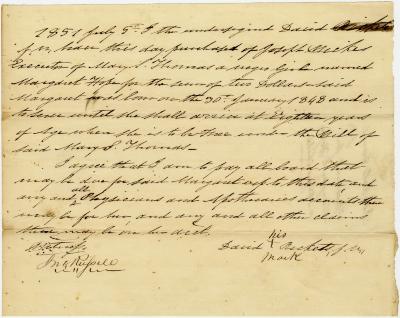 1851 July 5th I the undersigned David
f. n. have this day purchased of Joseph
Executor of Mary S. Thomas a negro Girl named
Margaret Hope for the sum of two Dollars said
Margaret was born on the 30th January 1843 and is
to serve until she shall arrive at Eighteen years
of Age when she is to be free under the Will of
said Mary S. Thomas—
I agree that I am to pay all board that
may be due for said Margaret up to this date and
any and all Physicians and Apothecaries accounts there
may be for her and any and all other claims
there may be on her acct.
his
David f. n.
mark